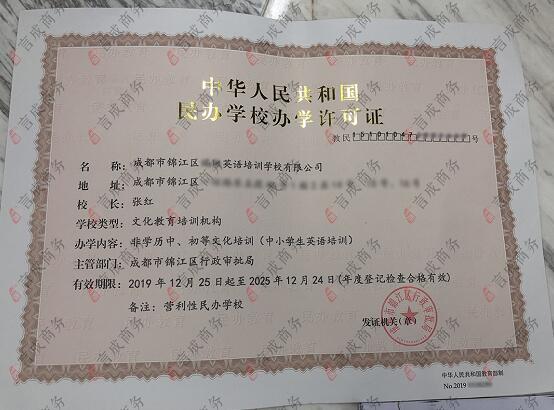 中华人民共和国
民办学校办学许可证
教民 号
名 称：成都市锦江区 英语培训学校有限公司
地 址：成都市锦江区
校 长：张红
学校类型：文化教育培训机构
办学内容：非学历中、初等文化培训（中小学生英语培训）
主管部门：成都市锦江区行政审批局
有效期限：2019 年 12 月 25 日起至 2025 年 12 月 24 日(年度登记检查合格有效)
备注：营利性民办学校
发证机关（章）
中华人民共和国教育部制
No.2019
言成商务